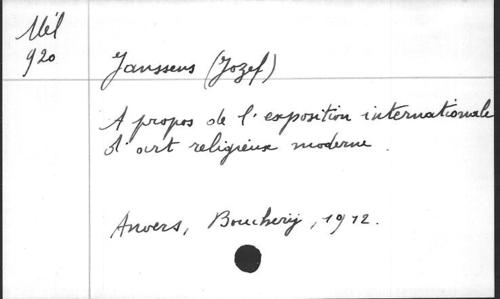 Mél
920
Janssens (Jozef)
A propos de l'exposition internationale
d'art religieux moderne.
Anvers, Boucherij, 1912.